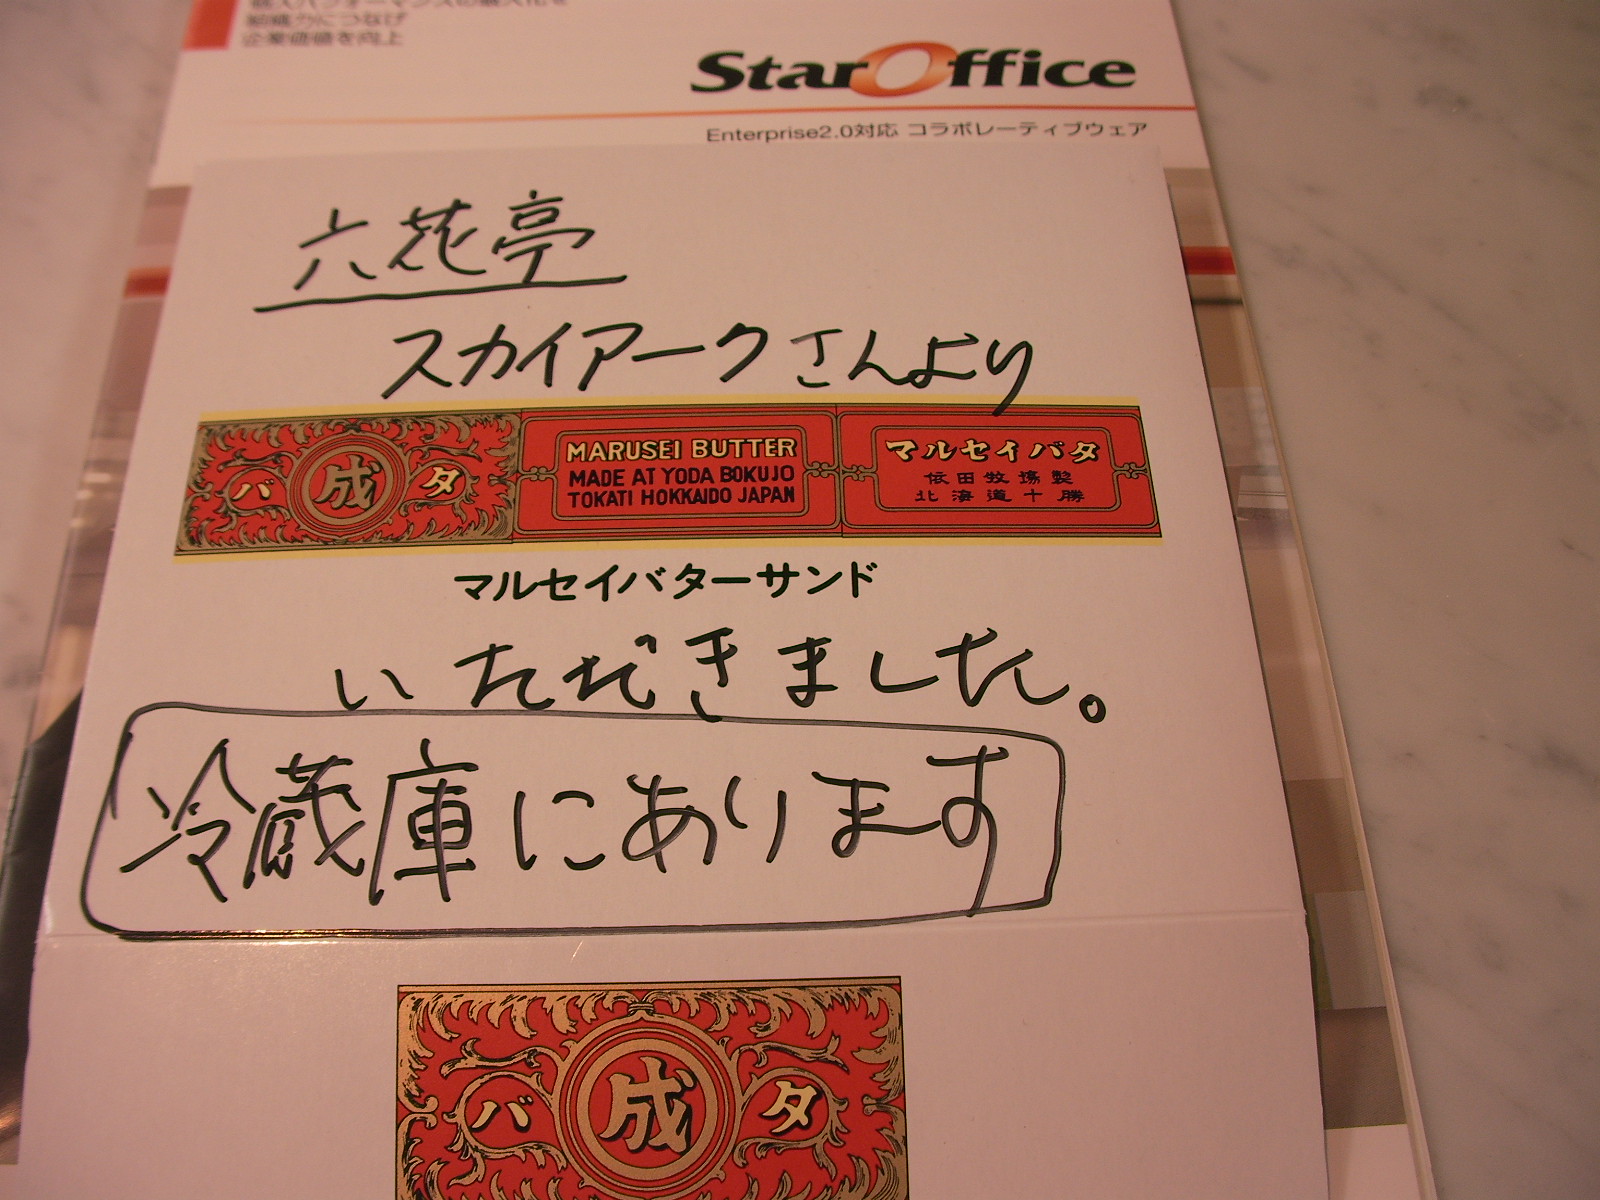 組織力につなげ
企業価値を向上
StarOffice
Enterprise2.0対応 コラボレーティブウェア
六花亭
スカイアークさんより
バ 成 タ
MARUSEI BUTTER
MADE AT YODA BOKUJO
TOKATI HOKKAIDO JAPAN
マルセイバタ
依田牧場製
北海道十勝
マルセイバターサンド
いただきました。
冷蔵庫にあります
バ 成 タ